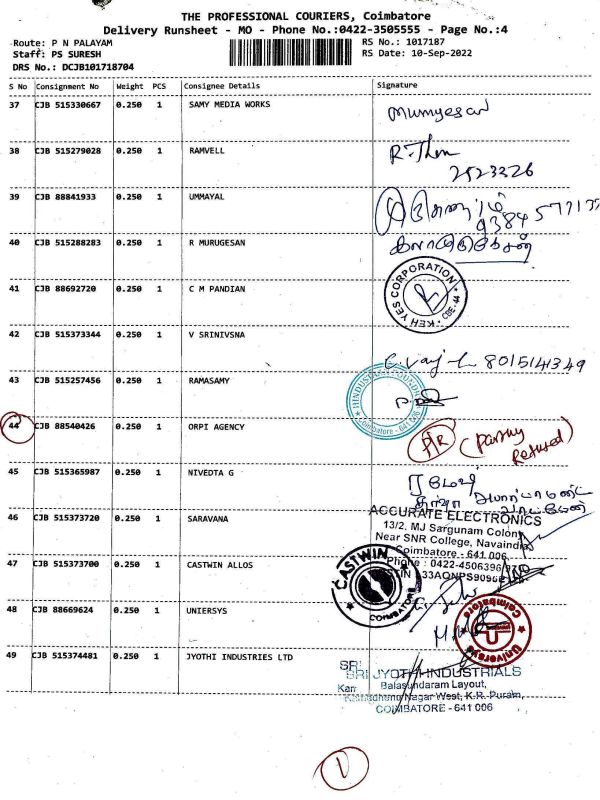 THE PROFESSIONAL COURIERS, Coimbatore
Delivery Runsheet - MO - Phone No.:0422-3505555 - Page No.:4
Route: P N PALAYAM RS No.: 1017187
Staff: PS SURESH RS Date: 10-Sep-2022
DRS No.: DCJB101718704
S No Consignment No Weight PCS Consignee Details Signature
37 CJB 515330667 0.250 1 SAMY MEDIA WORKS
38 CJB 515279028 0.250 1 RAMVELL
2523326
39 CJB 88841933 0.250 1 UMMAYAL
40 CJB 515288283 0.250 1 R MURUGESAN
41 CJB 88692720 0.250 1 C M PANDIAN
KEH YES CORPORATION CBE-44
42 CJB 515373344 0.250 1 V SRINIVSNA
8015141349
43 CJB 515257456 0.250 1 RAMASAMY
Coimbatore - 641 006
44 CJB 88540426 0.250 1 ORPI AGENCY
P/R (Party Refused)
45 CJB 515365987 0.250 1 NIVEDTA G
46 CJB 515373720 0.250 1 SARAVANA
ACCURATE ELECTRONICS
13/2, MJ Sargunam Colony
Near SNR College, Navaindia
Coimbatore - 641 006
Phone : 0422-4506396
47 CJB 515373700 0.250 1 CASTWIN ALLOS
CASTWIN COIMBATORE
48 CJB 88669624 0.250 1 UNIERSYS
Coimbatore
49 CJB 515374481 0.250 1 JYOTHI INDUSTRIES LTD
SRI JYOTHI INDUSTRIALS
Balasundaram Layout,
Nagar West, K.R. Puram,
COIMBATORE - 641 006